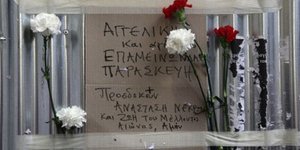 ΑΓΓΕΛΙΚ
και
ΕΠΑΜΕΙΝΩΝ
ΠΑΡΑΣΚΕΥΗ
Προσδοκῶ
ΑΝΑΣΤΑΣΗ ΝΕΚΡ
και ΖΩΗ του Μέλλοντος
Αἰῶνος, Αμήν